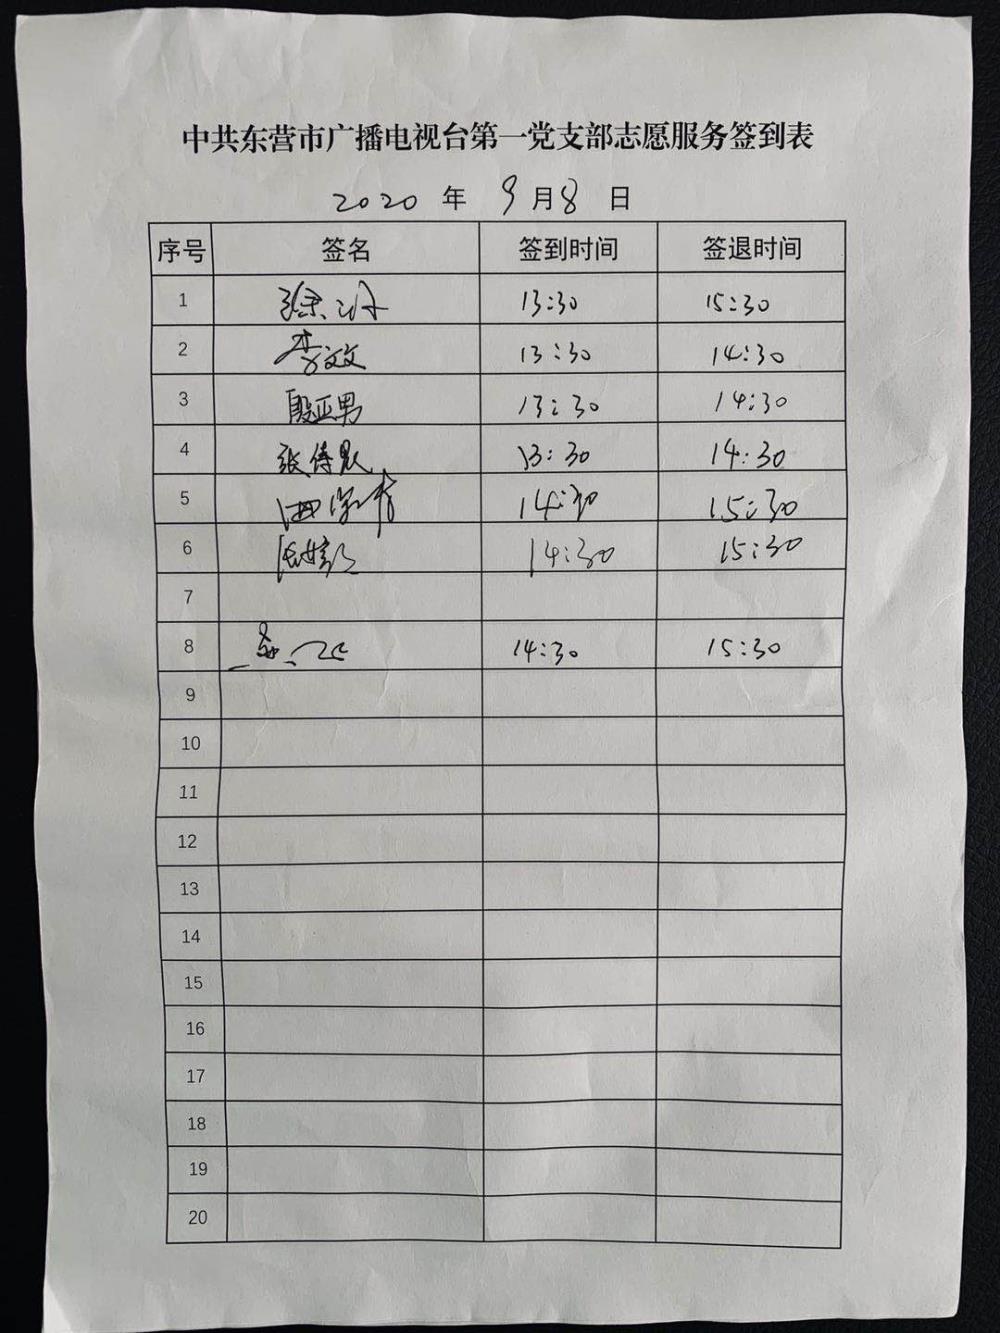 中共东营市广播电视台第一党支部志愿服务签到表
2020 年 9 月 8 日
序号 签名 签到时间 签退时间
1 13:30 15:30
2 李文文 13:30 14:30
3 殷亚男 13:30 14:30
4 13:30 14:30
5 14:30 15:30
6 14:30 15:30
7
8 14:30 15:30
9
10
11
12
13
14
15
16
17
18
19
20